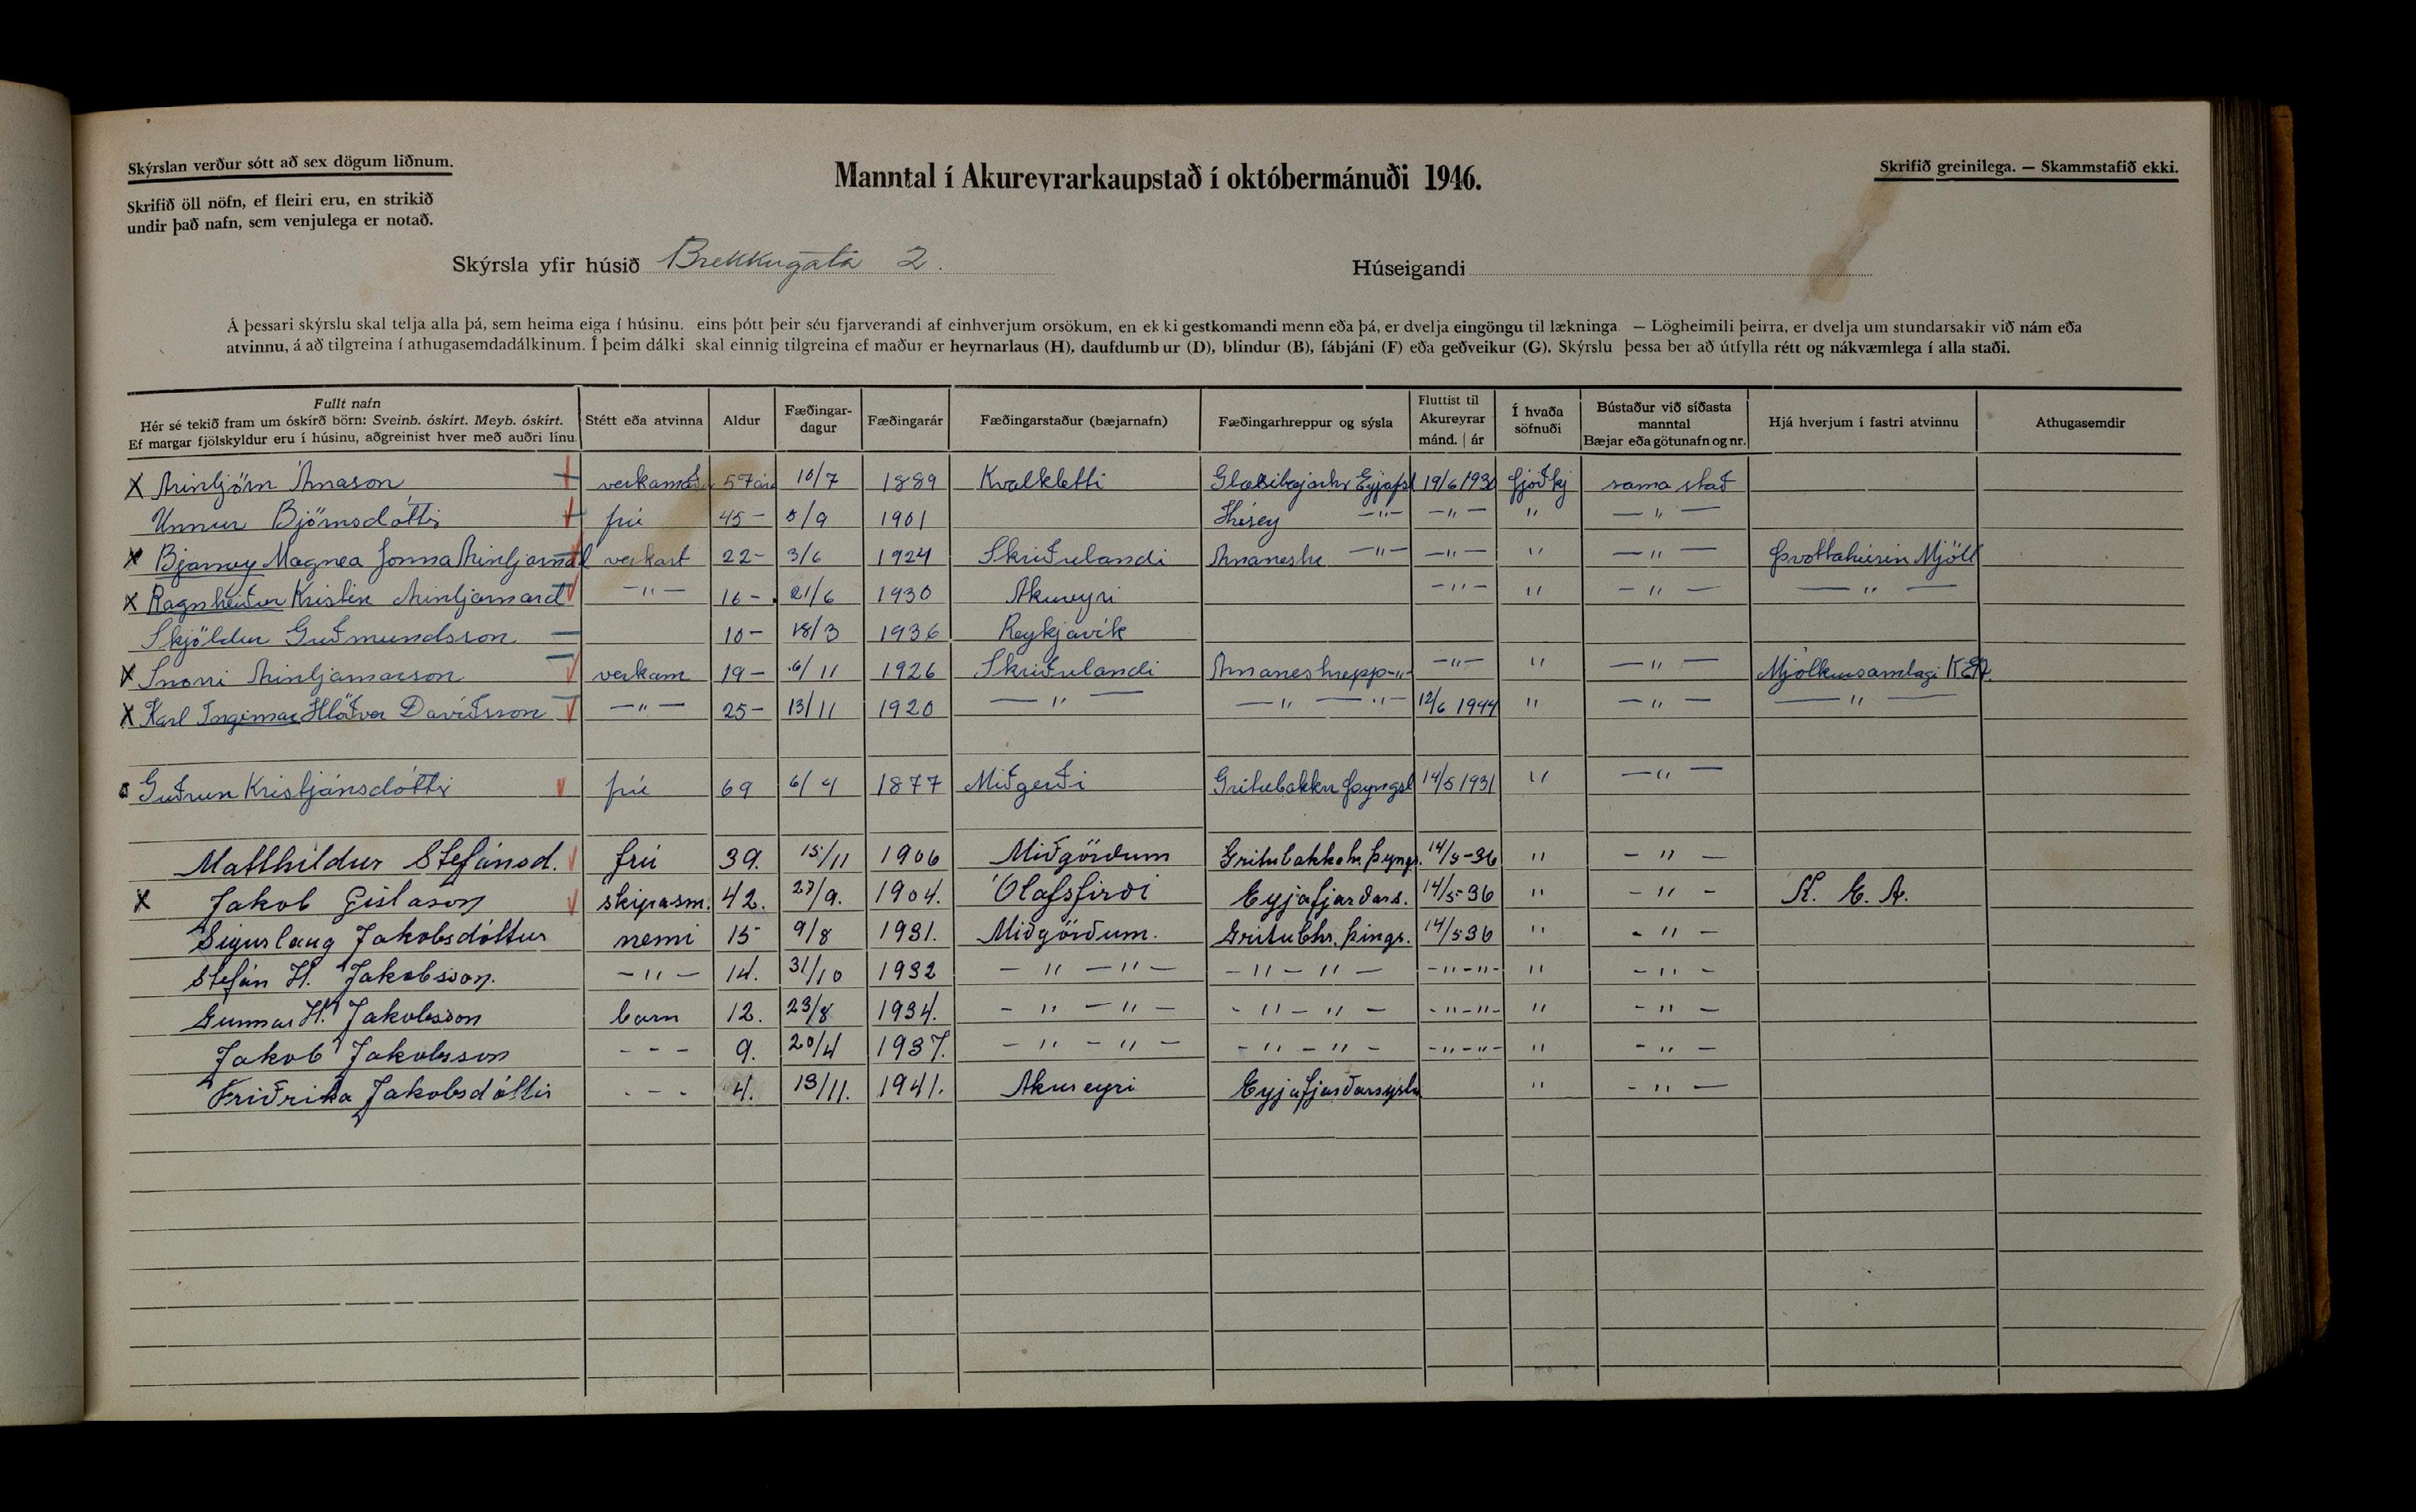 Skýrslan verður sótt að sex dögum liðnum.
Skrifið öll nöfn, ef fleiri eru, en strikið
undir það nafn, sem venjulega er notað.
Manntal í Akureyrarkaupstað í októbermánuði 1946.
Skrifið greinilega. — Skammstafið ekki.
Skýrsla yfir húsið Brekkugata 2.
Húseigandi
Á þessari skýrslu skal telja alla þá, sem heima eiga í húsinu, eins þótt þeir séu fjarverandi af einhverjum orsökum, en ekki gestkomandi menn eða þá, er dvelja eingöngu til lækninga. — Lögheimili þeirra, er dvelja um stundarsakir við nám eða
atvinnu, á að tilgreina í athugasemdadálkinum. Í þeim dálki skal einnig tilgreina ef maður er heyrnarlaus (H), daufdumbur (D), blindur (B), fábjáni (F) eða geðveikur (G). Skýrslu þessa ber að útfylla rétt og nákvæmlega í alla staði.
Fullt nafn
Hér sé tekið fram um óskírð börn: Sveinb. óskírt. Meyb. óskírt.
Ef margar fjölskyldur eru í húsinu, aðgreinist hver með auðri línu.
Stétt eða atvinna
Aldur
Fæðingar-
dagur
Fæðingarár
Fæðingarstaður (bæjarnafn)
Fæðingarhreppur og sýsla
Fluttist til
Akureyrar
mánd. | ár
Í hvaða
söfnuði
Bústaður við síðasta
manntal
Bæjar eða götunafn og nr.
Hjá hverjum í fastri atvinnu
Athugasemdir
X Arinbjörn Árnason 10/7 1889 Kvalkletti sama stað
Unnur Björnsdóttir frú 45 — 1901 Hrísey —"— —"— " —"—
X Bjarney Magnea Jonna Arinbjarnard verkast 22- 3/6 1924 Skriðulandi Arnaneshr —"— —"— " —"— Þvottahúsin Mjöll
X Ragnheiður Kristín Arinbjarnard —"— 16 - 21/6 1930 Akureyri —"— " —"— —"—
Skjöldur Guðmundsson 10 - 18/3 1936 Reykjavík
X Snorri Arinbjarnarson verkam 19 - 6/11 1926 Skriðulandi Arnaneshrepp -"- —"— " —"— Mjólkursamlagi KEA.
X Karl Ingimar Hlöðver Davíðsson —"— 25 - 13/11 1920 —"— —"— —"— 12/6 1944 " —"— —"—
Guðrun Kristjánsdóttir frú 69 6/4 1877 Miðgerði Grítubakkr Þyngsl 14/5 1931 " —"—
Matthildur Stefánsd. frú 39. 15/11 1906 Miðgörðum Grítubakkahr. Þyngs. 14/5-36 " - " -
X Jakob Gíslason skipasm. 42. 27/9. 1904. Ólafsfirði Eyjafjarðars. 14/5-36 " - " - K. E. A.
Sigurlaug Jakobsdóttur nemi 15 9/8 1931. Miðgörðum. Grítubhr. Þings. 14/5 36 " - " -
Stefán H. Jakobsson. - " - 14. 31/10 1932 - " - " - - " - " - - " - " - " - " -
Gunnar H. Jakobsson barn 12. 23/8 1934. - " - " - - " - " - - " - " - " - " -
Jakob Jakobsson - - - 9. 20/4 1937. - " - " - - " - " - - " - " - " - " -
Friðrika Jakobsdóttir - - - 4. 13/11. 1941. Akureyri Eyjafjarðarsýslu " - " -